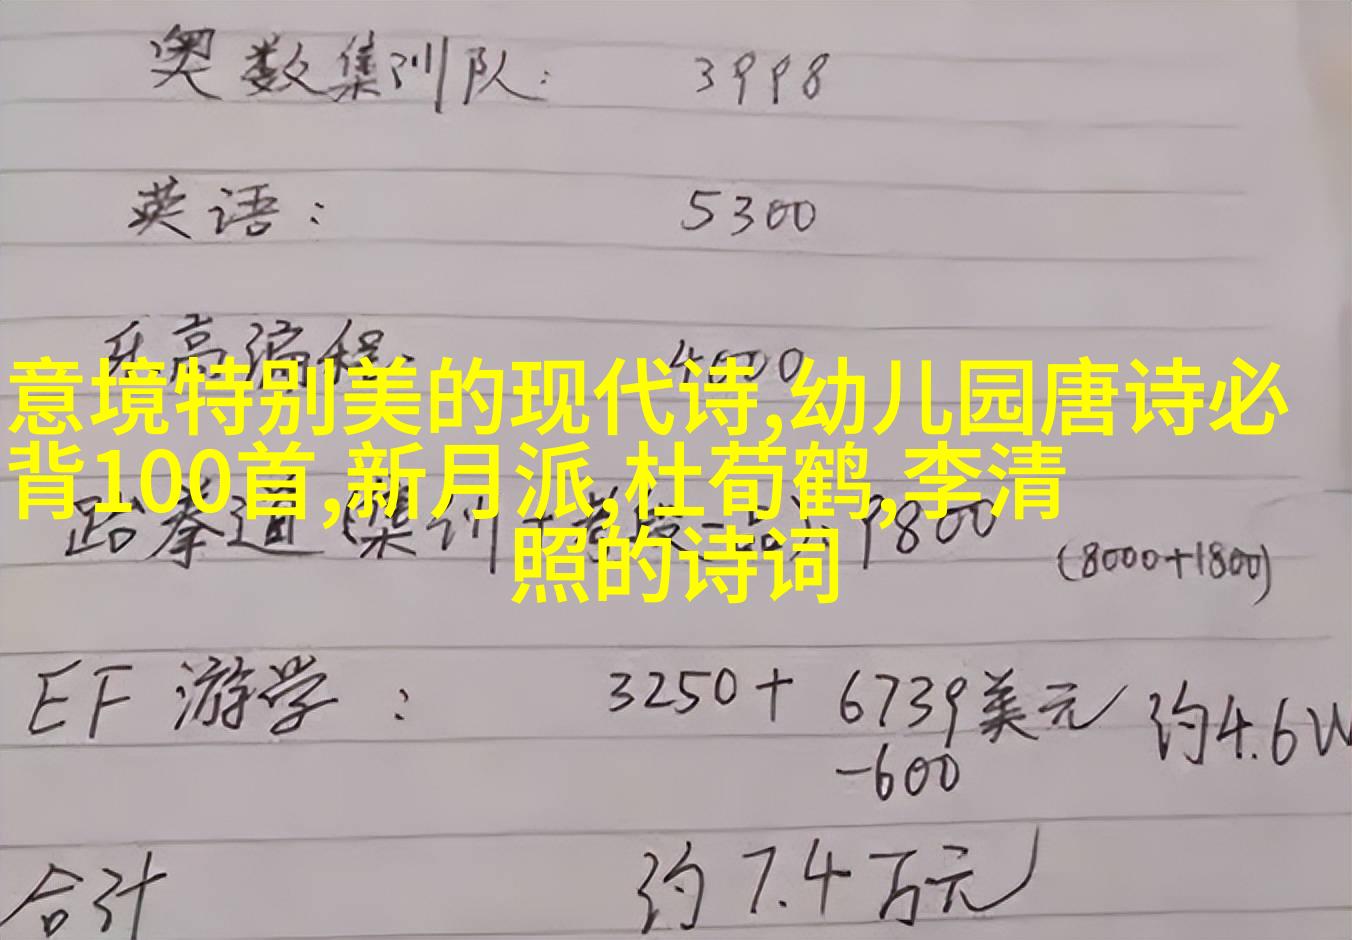 奥数集训队: 3998
英语: 5300
乐高编程: 4000
意境特别美的现代诗,幼儿园唐诗必
背100首,新月派,杜荀鹤,李清
照的诗词
跆拳道(集训+考段 9800
(8000+1800)
EF 游学: 3250+ 6739美元 约4.6W
-600
合计 约7.4万元